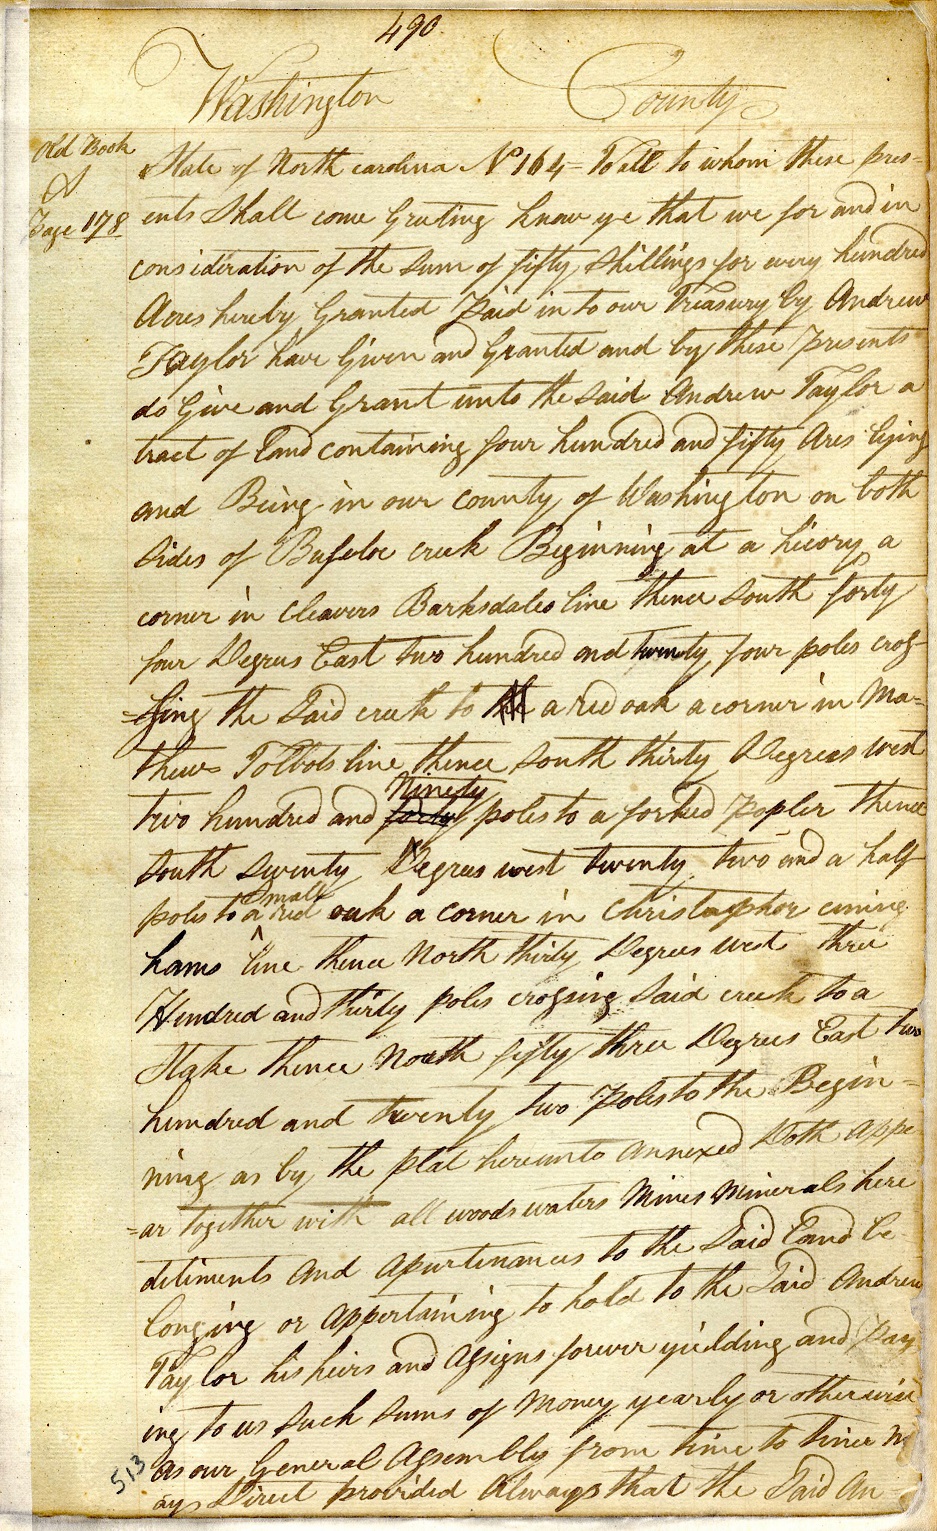 490
Washington County
Old Book
A
Page 178
State of North carolina No 164 = To all to whom these pres=
ents Shall come Greeting know ye that we for and in
consideration of the sum of fifty Shillings for every hundred
Acres hereby Granted Paid in to our Treasury by Andrew
Taylor have Given and Granted and by these Presents
do Give and Grant unto the said Andrew Taylor a
tract of Land containing four hundred and fifty Ares lying
and Being in our county of Washington on both
sides of Bufeloe creek Beginning at a hicory a
corner in Cleavers Barksdales line thence South forty
four Degrees East two hundred and twenty four poles cros=
=sing the Said creek to a red oak a corner in Ma=
thews Tolbots line thence South thirty Degrees west
Ninety
two hundred and forty poles to a forked Popler thence
South Seventy Degrees west twenty two and a half
Small
poles to a red oak a corner in Christopher cuning
hams line thence North thirty Degrees west three
Hundred and thirty poles crossing Said creek to a
Stake thence North fifty three Degrees East two
hundred and twenty two Poles to the Begin=
ning as by the plat hereunto annexed Doth appe
=ar together with all woods waters Mines Minerals here
ditiments and apurtinances to the Said Land be
longing or appertaining to hold to the Said Andrew
Taylor his heirs and assigns forever yielding and Pay
ing to us such sums of Money yearly or otherwise
as our General Assembly from time to time m
ay Direct provided Always that the Said An=
513